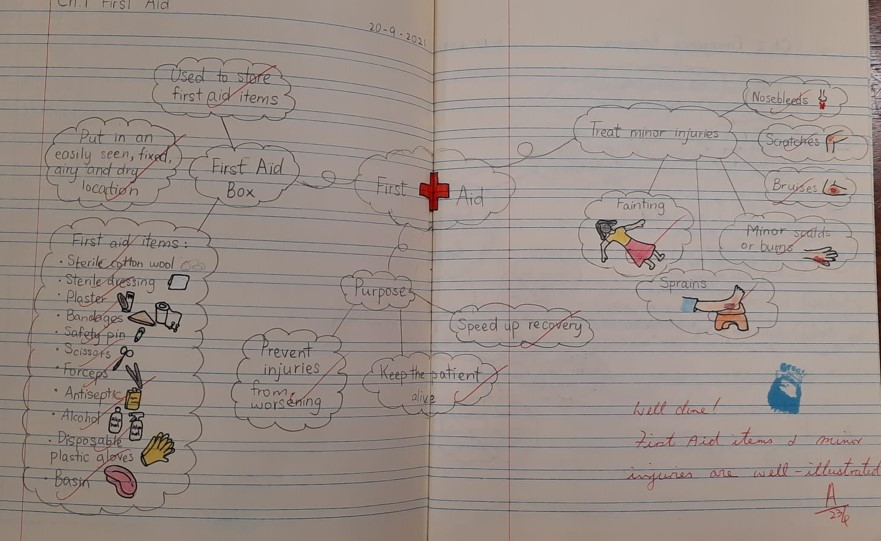 Ch.1 First Aid
20-9-2021
Used to store
first aid items
Put in an
easily seen, fixed,
airy and dry
location
First Aid
Box
First aid items:
• Sterile cotton wool
• Sterile dressing
• Plaster
• Bandages
• Safety pin
• Scissors
• Forceps
• Antiseptic
• Alcohol
• Disposable
plastic gloves
• Basin
First Aid
Purpose
Prevent
injuries
from
worsening
Keep the patient
alive
Speed up recovery
Treat minor injuries
Nosebleeds
Scratches
Bruises
Minor scalds
or burns
Sprains
Fainting
Great
Well done!
First Aid items & minor
injuries are well-illustrated
A